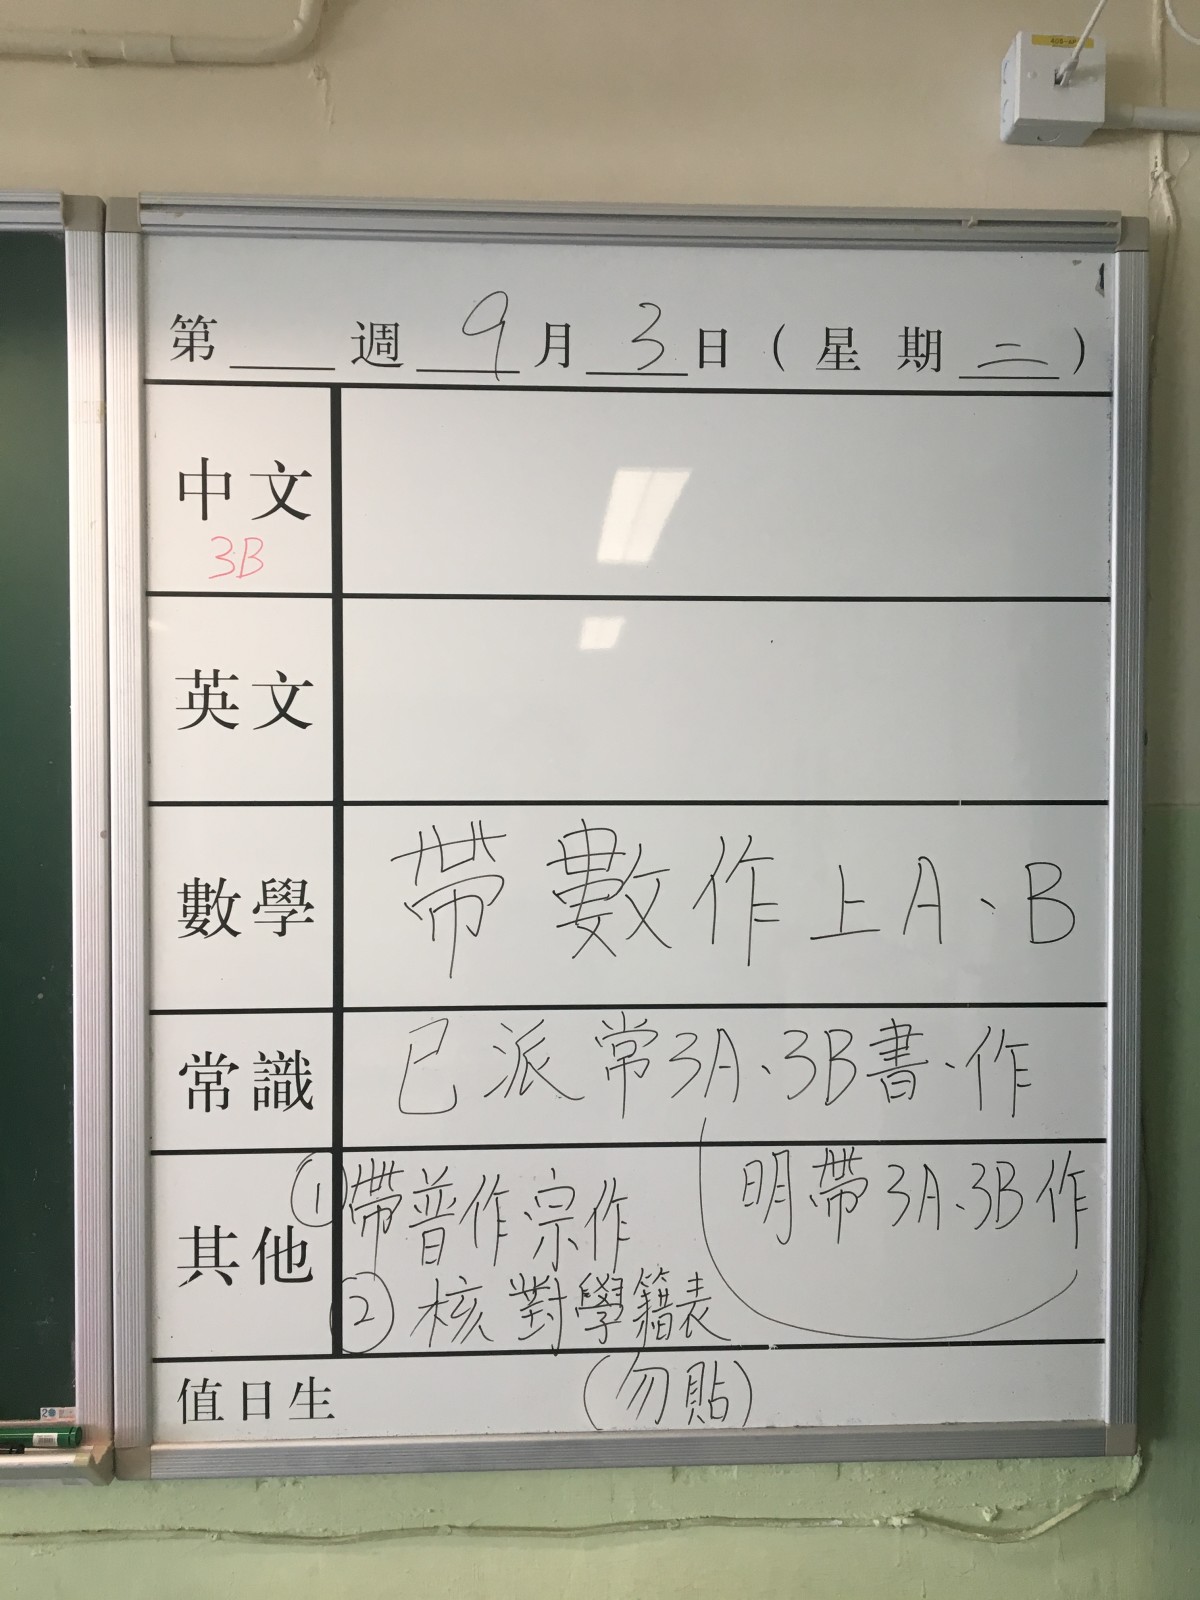 第____週 9月 3日 ( 星期二 )
中文
3B
英文
數學 帶數作上A、B
常識 已派常3A、3B書、作
明帶3A、3B作
其他 ①帶普作宗作
②核對學籍表
(勿貼)
值日生